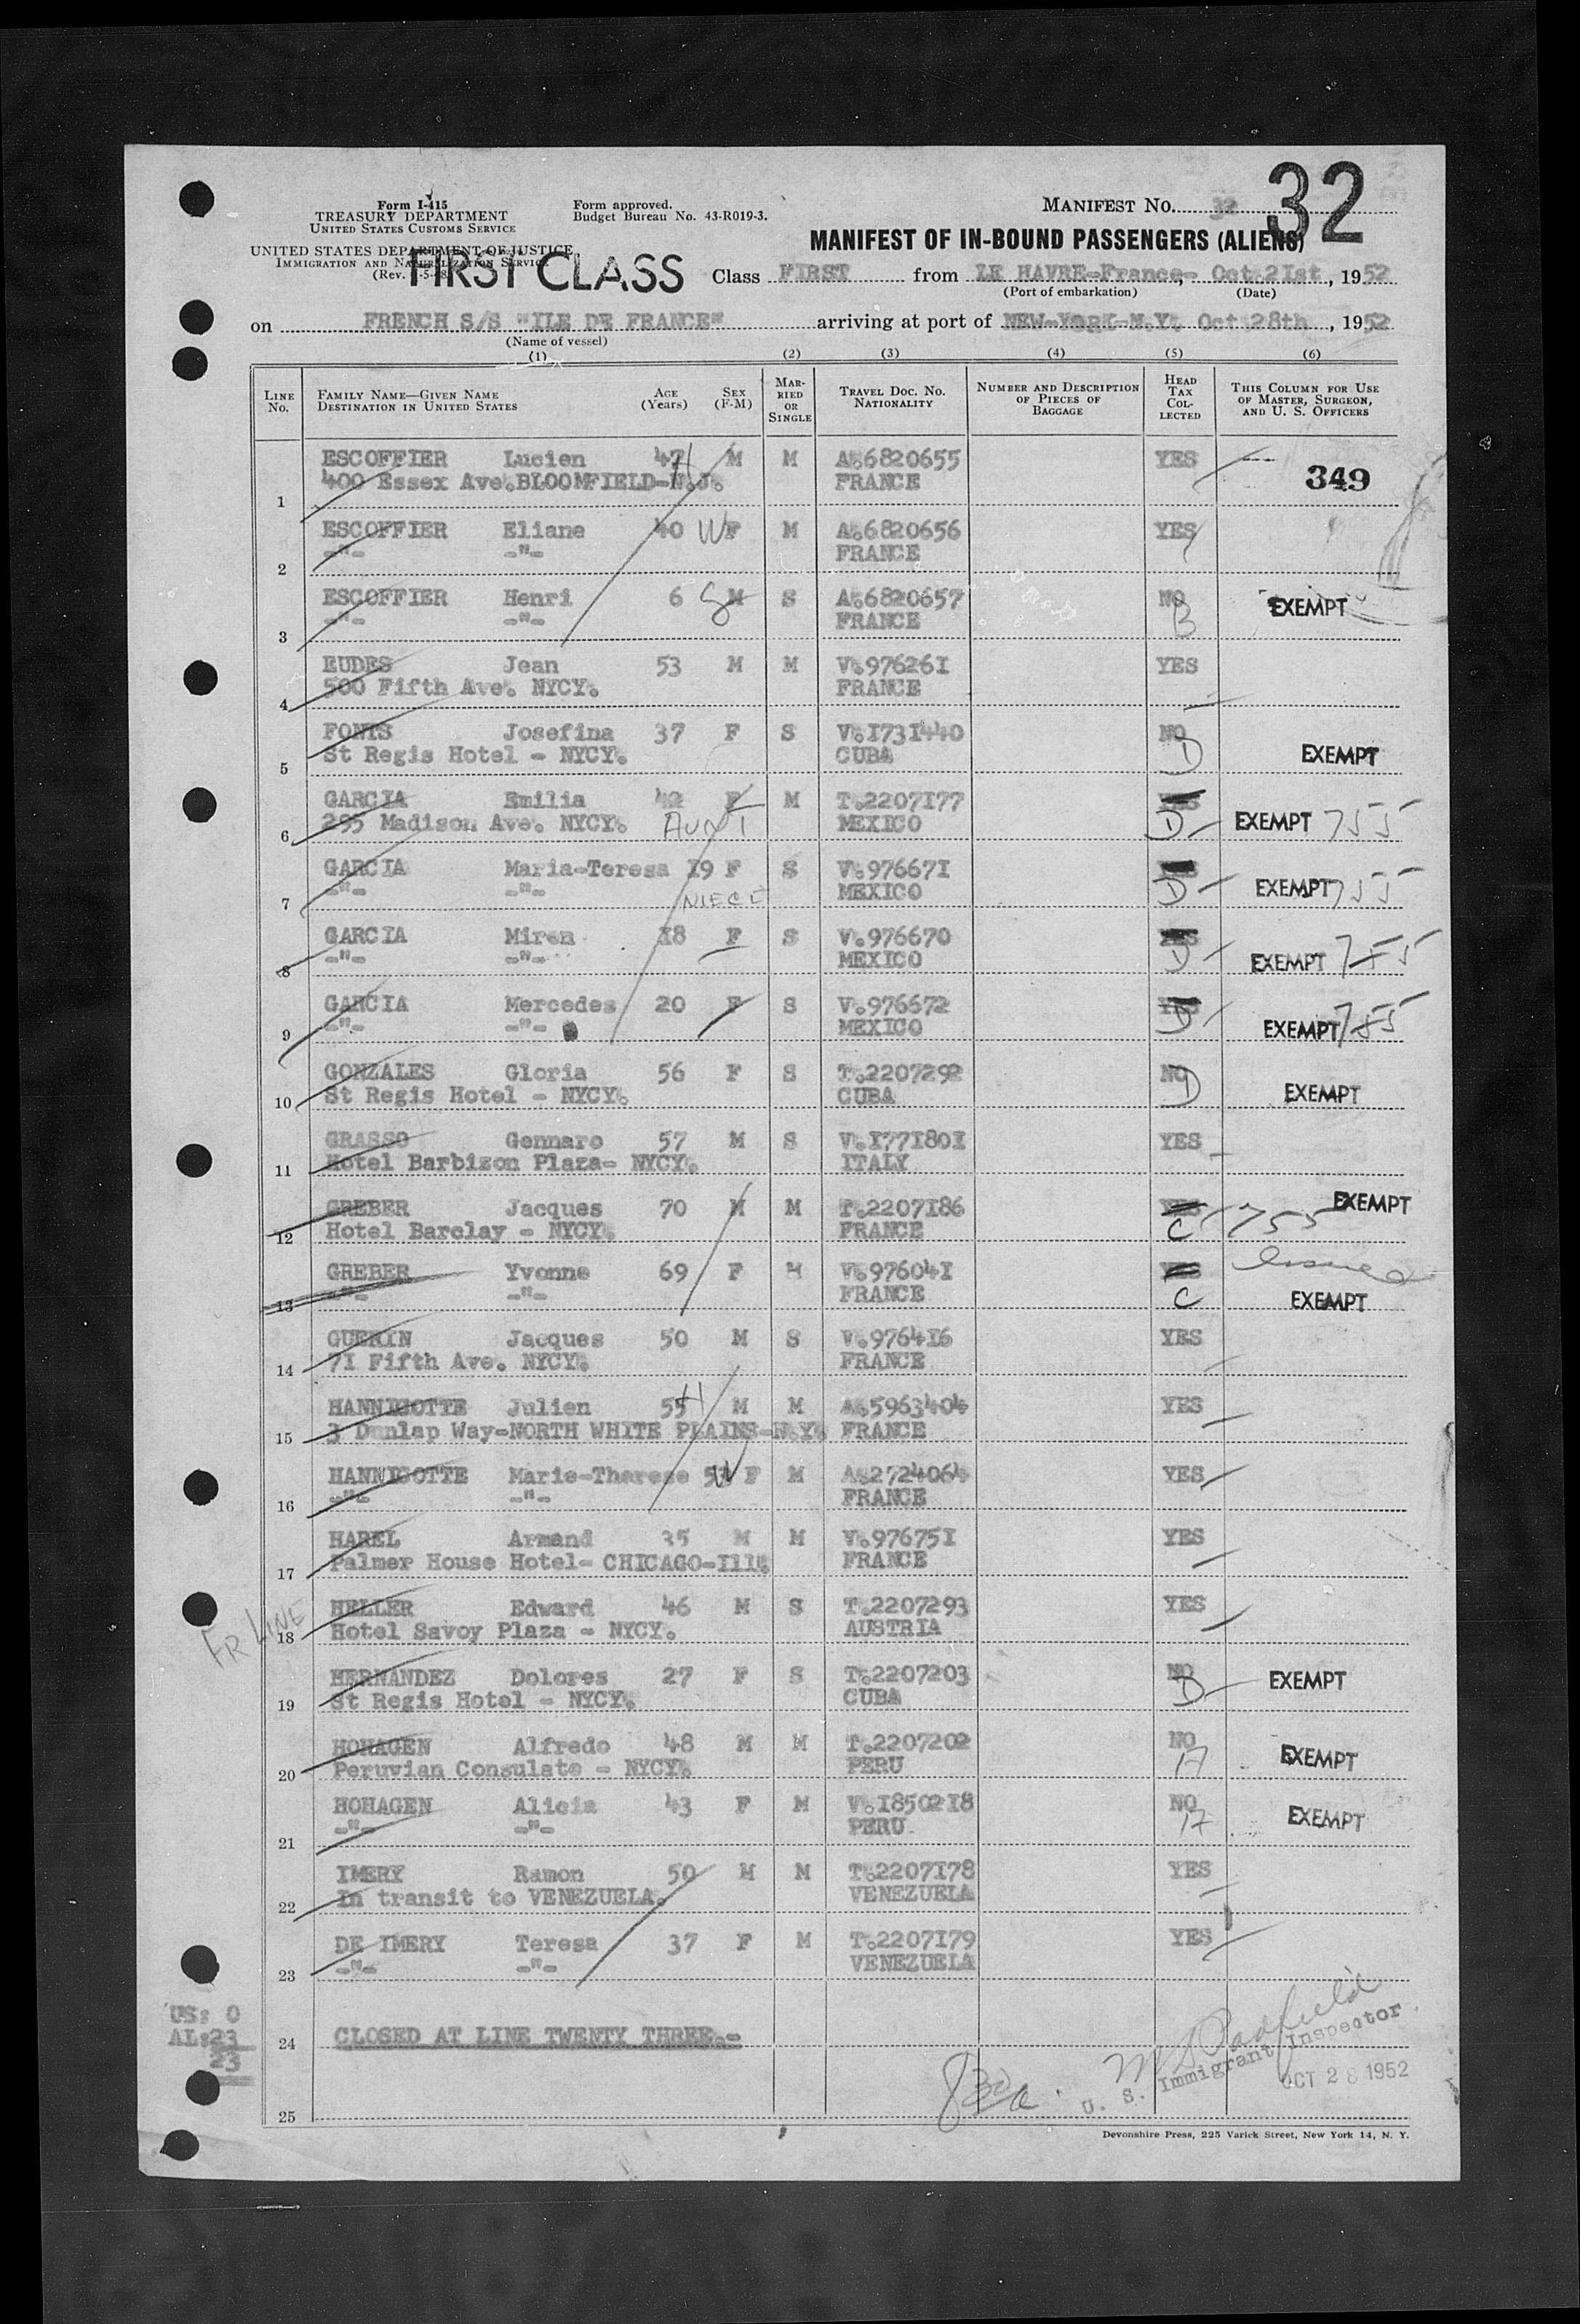 32
Form I-415
TREASURY DEPARTMENT
UNITED STATES CUSTOMS SERVICE
Form approved.
Budget Bureau No. 43-R019-3.
MANIFEST NO. 32
UNITED STATES DEPARTMENT OF JUSTICE
IMMIGRATION AND NATURALIZATION SERVICE
FIRST CLASS
MANIFEST OF IN-BOUND PASSENGERS (ALIENS)
Class FIRST from LE HAVRE-France, - Oct.2Ist, 1952
(Port of embarkation) (Date)
on FRENCH S/S "ILE DE FRANCE" arriving at port of NEW-YORK-N.Y. Oct.28th, 1952
(Name of vessel)
(1) (2) (3) (4) (5) (6)
LINE No. FAMILY NAME—GIVEN NAME DESTINATION IN UNITED STATES AGE (Years) SEX (F-M) MARRIED OR SINGLE TRAVEL DOC. NO. NATIONALITY NUMBER AND DESCRIPTION OF PIECES OF BAGGAGE HEAD TAX COLLECTED THIS COLUMN FOR USE OF MASTER, SURGEON, AND U. S. OFFICERS
ESCOFFIER Lucien 47 H M M A.6820655 YES
1 400 Essex Ave.BLOOMFIELD-N.J. FRANCE 349
ESCOFFIER Eliane 40 W F M A.6820656 YES
2 -"- -"- FRANCE
ESCOFFIER Henri 6 S M S A.6820657 NO EXEMPT
3 -"- -"- FRANCE B
EUDES Jean 53 M M V.97626I YES
4 500 Fifth Ave. NYCY. FRANCE
FONTS Josefina 37 F S V.I73I440 NO
5 St Regis Hotel - NYCY. CUBA D EXEMPT
GARCIA Emilia 42 F M T.2207I77 YES
6 295 Madison Ave. NYCY. AUNT MEXICO D EXEMPT 755
GARCIA Maria-Teresa I9 F S V.97667I
7 -"- -"- NIECE MEXICO D EXEMPT 755
GARCIA Miren I8 F S V.976670 YES
8 -"- -"- MEXICO D EXEMPT 755
GARCIA Mercedes 20 F S V.976672 YES
9 -"- -"- MEXICO D EXEMPT 755
GONZALES Gloria 56 F S T.2207292 NO
10 St Regis Hotel - NYCY. CUBA D EXEMPT
GRASSO Gennaro 57 M S V.I77I80I YES
11 Hotel Barbizon Plaza- NYCY. ITALY
GREBER Jacques 70 M M T.2207I86 YES EXEMPT
12 Hotel Barclay - NYCY. FRANCE C 755
GREBER Yvonne 69 F M V.97604I YES
13 -"- -"- FRANCE C EXEMPT
GUERIN Jacques 50 M S V.9764I6 YES
14 7I Fifth Ave. NYCY. FRANCE
HANNIGOTTE Julien 55 H M M A.5963404 YES
15 3 Dunlap Way-NORTH WHITE PLAINS-N.Y. FRANCE
HANNIGOTTE Marie-Therese W F M A.2724064 YES
16 -"- -"- FRANCE
HAREL Armand 35 M M V.97675I YES
17 Palmer House Hotel- CHICAGO-Ill. FRANCE
HELLER Edward 46 M S T.2207293 YES
FR LINE 18 Hotel Savoy Plaza - NYCY. AUSTRIA
HERNANDEZ Dolores 27 F S T.2207203 NO EXEMPT
19 St Regis Hotel - NYCY. CUBA D
HOHAGEN Alfredo 48 M M T.2207202 NO
20 Peruvian Consulate - NYCY. PERU 17 EXEMPT
HOHAGEN Alicia 43 F M V.I8502I8 NO EXEMPT
21 -"- -"- PERU 17
IMERY Ramon 50 M M T.2207I78 YES
22 In transit to VENEZUELA. VENEZUELA
DE IMERY Teresa 37 F M T.2207I79 YES
23 -"- -"- VENEZUELA
US: 0
AL:23
23
24 CLOSED AT LINE TWENTY THREE.-
U. S. Immigrant Inspector
OCT 28 1952
25
Devonshire Press, 225 Varick Street, New York 14, N. Y.